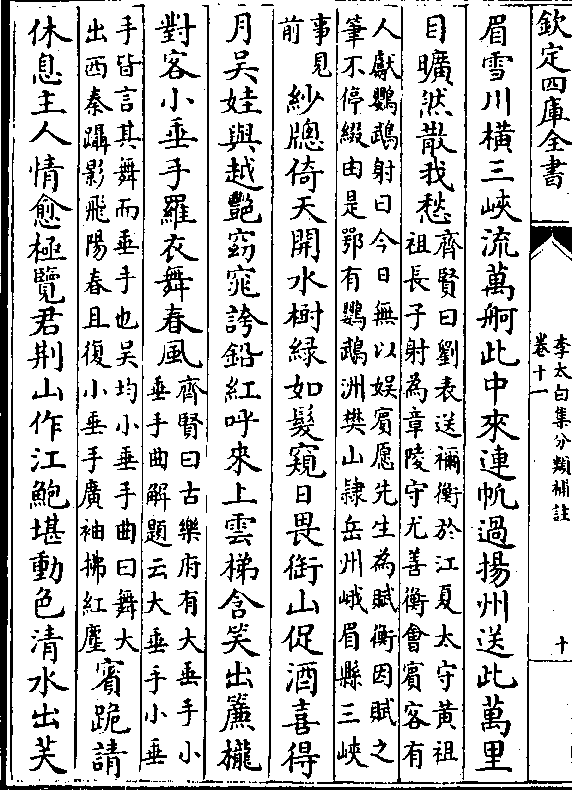 欽定四庫全書
李太白集分類補註
卷十一
十
眉雪川橫三峽流萬舸此中來連帆過揚州送此萬里
目曠然散我愁
齊賢曰劉表送禰衡於江夏太守黃祖
祖長子射為章陵守尤善衡會賓客有
人獻鸚鵡射曰今日無以娛賓愿先生為賦衡因賦之
筆不停綴由是鄂有鸚鵡洲樊山隸岳州峨眉縣三峽
事見
前
紗牕倚天開水樹綠如髮窺日畏銜山促酒喜得
月吳娃與越艷窈窕誇鉛紅呼來上雲梯含笑出簾櫳
對客小垂手羅衣舞春風
齊賢曰古樂府有大垂手小
垂手曲解題云大垂手小垂
手皆言其舞而垂手也吳均小垂手曲曰舞大
出西秦躡影飛陽春且復小垂手廣袖拂紅塵
賓跪請
休息主人情愈極覽君荆山作江鮑堪動色清水出芙